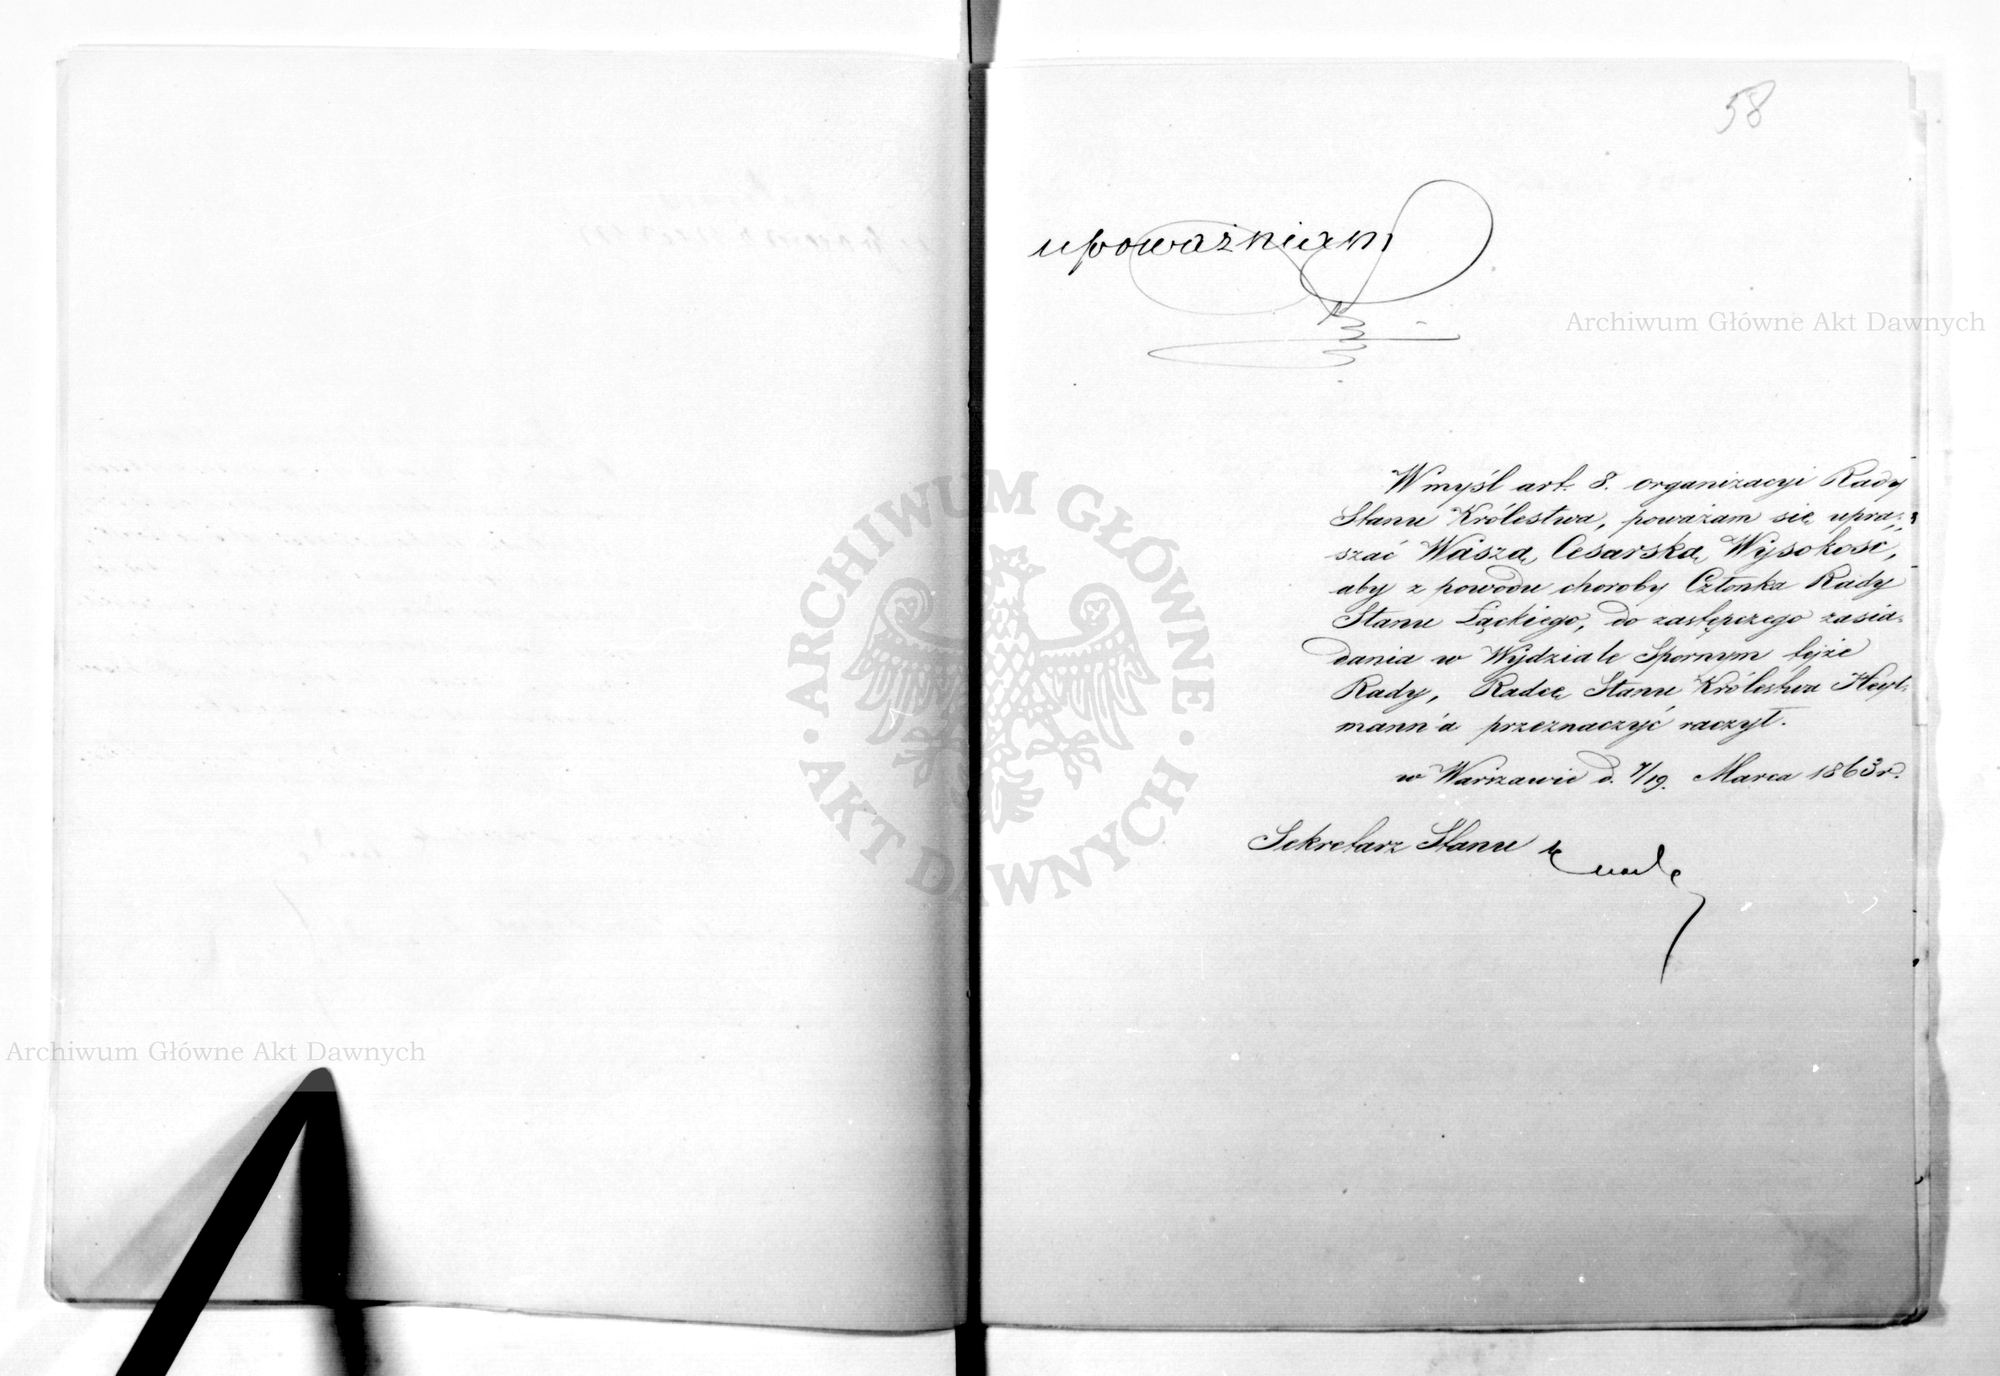 58
upoważniam
Archiwum Główne Akt Dawnych
W myśl art. 8. organizacyi Rady
Stanu Królestwa, poważam się upra-
szać Waszą Cesarską Wysokość,
aby z powodu choroby Członka Rady
Stanu Łąckiego, do zastępczego zasia-
dania w Wydziale Spornym tejże
Rady, Radcę Stanu Królestwa Heyl-
mann'a przeznaczyć raczył.
w Warszawie d. 7/19. Marca 1863 r.
Sekretarz Stanu
ARCHIWUM GŁÓWNE
AKT DAWNYCH
Archiwum Główne Akt Dawnych